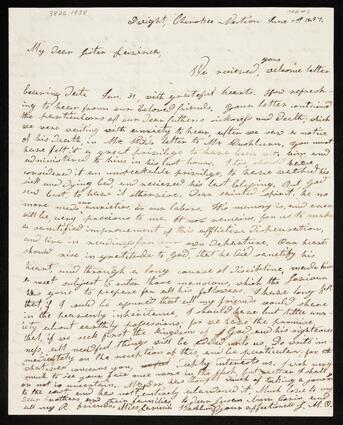 3826.1938
Dwight, Cherokee Nation June 1st 1837.
My dear Sister Persinea,
yours
We recieved, welcome letter
bearing date Jan. 31, with grateful hearts. How refresh
ing to hear from our beloved friends. Your letter contained
the particulars of our dear father's sickness and death, which
we were waiting with anxiety to hear, after we saw a notice
of his death in Mr letter to Mr Washburn. you must
have felt it a great privilege to have been with him and
administered to him in his last hours. I too should have
considered it an unspeakable privilege, to have watched his
sick and dying bed, and recieved his last blessing. But God
saw fit to have it otherwise. Dear sainted spirit, he no
more needs our labors. His memory is, and ever
will be, very precious to me. It now remains for us to make
a sanctified improvement of this afflictive dispensation,
and live in readiness for our own departure. Our hearts
should rise in gratitude to God, that he did sanctify his
heart, and through a long course of discipline, made him
a meet subject to enter those mansions which the Saviour
has gone to prepare for all his followers. I have long felt
that if I could be assured that all my friends would share
in the heavenly inheritance, I should have but little anx
iety about earthly possessions, for we have the promise
that, if we seek first the kingdom of God and his righteous
ness, all needful things will be added unto us. Do write im
mediately on the reception of this, and be particular, for
whatever concerns you, interests us. I wish very
much to see your face once more in the flesh but whether I shall
or not is uncertain. has thought much of taking a journey
to the east and has not entirely abandoned it. Much love to my
dear brothers and their families, to dear Susan Ann and
all my friends. Miss Washburn Yours affectionately